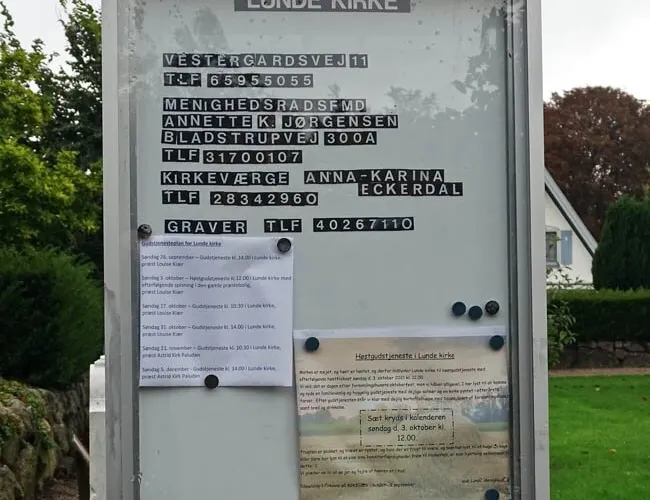 LUNDE KIRKE
VESTERGARDSVEJ 11
TLF 65955055
MENIGHEDSRADSFMD
ANNETTE K. JØRGENSEN
BLADSTRUPVEJ 300A
TLF 31700107
KIRKEVÆRGE ANNA-KARINA
ECKERDAL
TLF 28342960
GRAVER TLF 40267110
Gudstjenesteplan for Lunde kirke
Søndag 26. september – Gudstjeneste kl. 14.00 i Lunde kirke,
præst Louise Kjær
Søndag 3. oktober – Høstgudstjeneste kl 12.00 i Lunde kirke med
efterfølgende spisning i den gamle præstebolig,
præst Louise Kjær
Søndag 17. oktober – Gudstjeneste kl. 10.30 i Lunde kirke,
præst Louise Kjær
Søndag 31. oktober – Gudstjeneste kl. 14.00 i Lunde kirke,
præst Louise Kjær
Søndag 21. november – Gudstjeneste kl. 10.30 i Lunde kirke,
præst Astrid Kirk Paludan
Søndag 5. december – Gudstjeneste kl. 14.00 i Lunde kirke,
præst Astrid Kirk Paludan
Høstgudstjeneste i Lunde kirke
Marken er mejet, og høet er høstet, og derfor indbyder Lunde kirke til høstgudstjeneste med
efterfølgende høstfrokost søndag d. 3. oktober 2021 kl. 12.00.
Sæt kryds i kalenderen
søndag d. 3. oktober kl.
12.00.